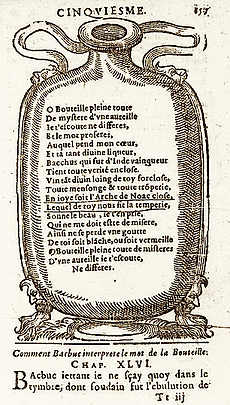 CINQVIESME.
O Bouteille pleine toute
De mystere d'vne auteille
Ie t'escoute ne differes,
Et le mot proferes,
Auquel pend mon cœur,
Et ta tant diuine liqueur,
Bacchus qui fut d'Inde vaingueur
Tient toute verité enclose.
Vin tāt diuin loing de toy forclose,
Toute mensonge & toute trōperie,
En ioye soit l'Arche de Noac close,
Lequel de toy nous fit la temperie,
Sonne le beau, ie t'en prie,
Qui me doit oster de misere,
Ainsi ne se perde vne goutte
De toi soit blāche, ou soit vermeille
O Bouteille pleine toute de misteres
D'vne aureille ie t'escoute,
Ne differes.
Comment Bacbuc interprete le mot de la Bouteille.
CHAP. XLVI.
Bacbuc iettant ie ne sçay quoy dans le
tymbre, dont soudain fut l'ebulution de
Tt iij